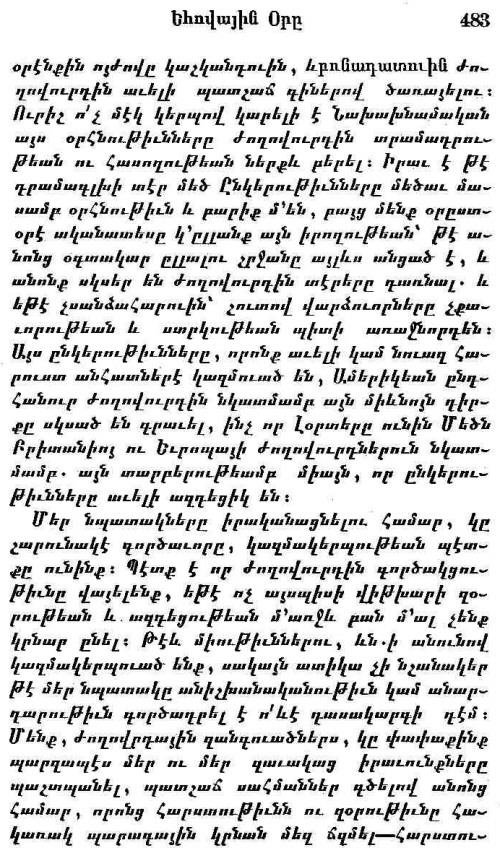 Եհովային Օրը 483
օրէնքին ոյժովը կաշկանդուին, եւ բռնադատուին ժո-
ղովուրդին աւելի պատշաճ գիներով ծառայելու:
Ուրիշ ո՛չ մէկ կերպով կարելի է Նախախնամական
այս օրհնութիւնները ժողովուրդին տրամադրու-
թեան ու հասողութեան ներքև բերել: Իրաւ է թէ
դրամագլխի տէր մեծ Ընկերութիւնները մեծաւ մա-
սամբ օրհնութիւն և բարիք մ՚են, բայց մենք օրըստ-
օրէ ականատեսը կ՚ըլլանք այն իրողութեան՝ թէ ա-
նոնց օգտակար ըլլալու շրջանը այլևս անցած է, և
անոնք սկսեր են ժողովուրդին տէրերը դառնալ. և
եթէ չսանձահարուին՝ շուտով վարձուորները չքա-
ւորութեան և ստրկութեան պիտի առաջնորդեն:
Այս ընկերութիւնները, որոնք աւելի կամ նուազ հա-
րուստ անհատներէ կազմուած են, Ամերիկեան ընդ-
հանուր ժողովուրդին նկատմամբ այն միևնոյն դիր-
քը սկսած են գրաւել, ինչ որ Լօրտերը ունին Մեծն
Բրիտանիոյ ու Եւրոպայի ժողովուրդներուն նկատ-
մամբ. այն տարբերութեամբ միայն, որ ընկերու-
թիւնները աւելի ազդեցիկ են:
Մեր նպատակները իրականացնելու համար, կը
շարունակէ գործաւորը, կազմակերպութեան պէտ-
քը ունինք: Պէտք է որ ժողովուրդին գործակցու-
թիւնը վայելենք, եթէ ոչ այսպիսի վիթխարի զօ-
րութեան և ազդեցութեան մ՚առջև բան մ՚ալ չենք
կրնար ընել: Թէև միութիւններու, ևն.ի անունով
կազմակերպուած ենք, սակայն ատիկա չի նշանակեր
թէ մեր նպատակը անիշխանականութիւն կամ անար-
դարութիւն գործադրել է ո՛ևէ դասակարգի դէմ:
Մենք, ժողովրդային զանգուածներս, կը փափաքինք
պարզապէս մեր ու մեր զաւակաց իրաւունքները
պաշտպանել, պատշաճ սահմաններ գծելով անոնց
համար, որոնց հարստութիւնն ու զօրութիւնը հա-
կառակ պարագային կրնան մեզ ճզմել—հարստու-